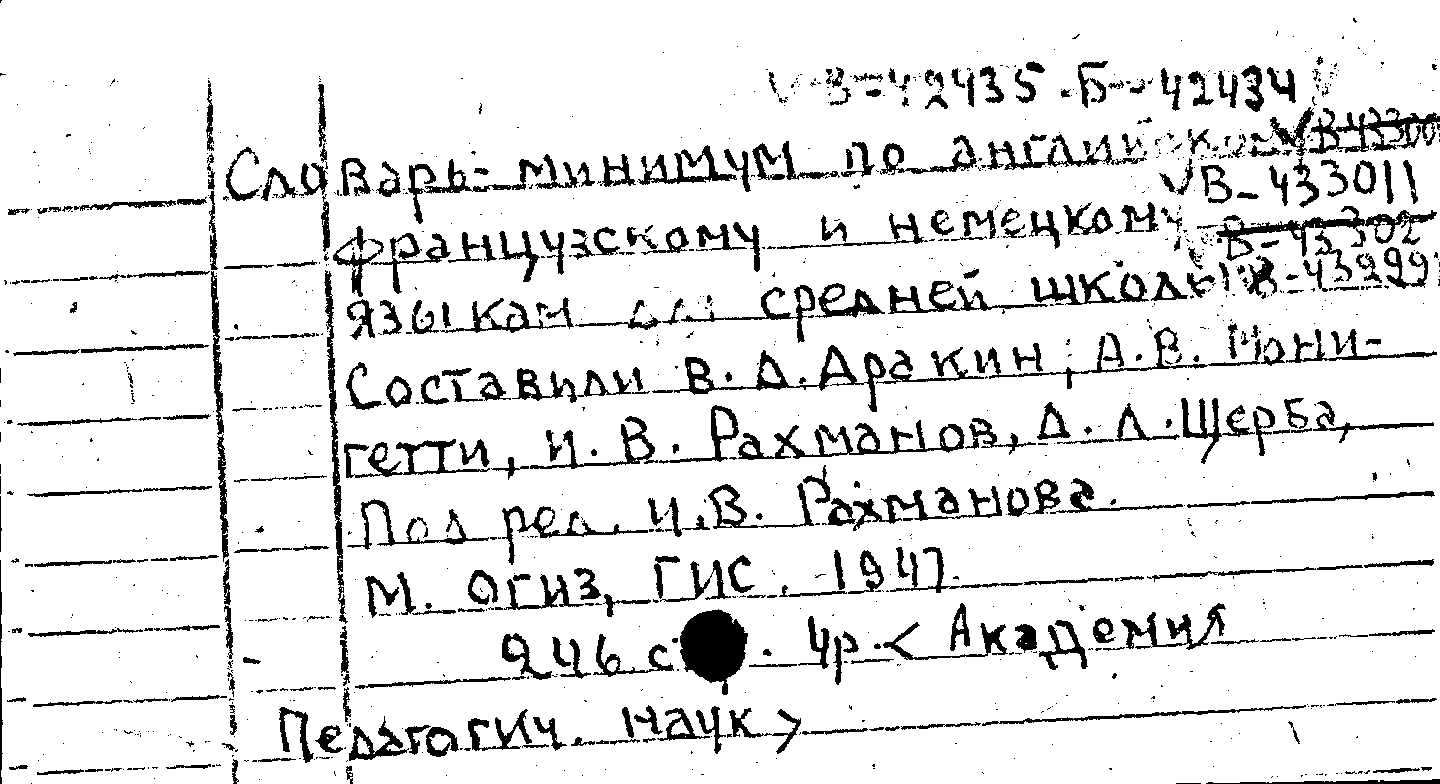 В-42435. Б-42434
Словарь-минимум по английскому В-43300
В-433011
французскому и немецкому
В-43302
языкам для средней школы В-43299
Составили В. Д. Аракин, А. В. Мони-
гетти, И. В. Рахманов, Д. Л. Щерба,
Под ред. И. В. Рахманова.
М. ОГИЗ, ГИС. 1947.
246 с . 4р. < Академия
Педагогич. наук >